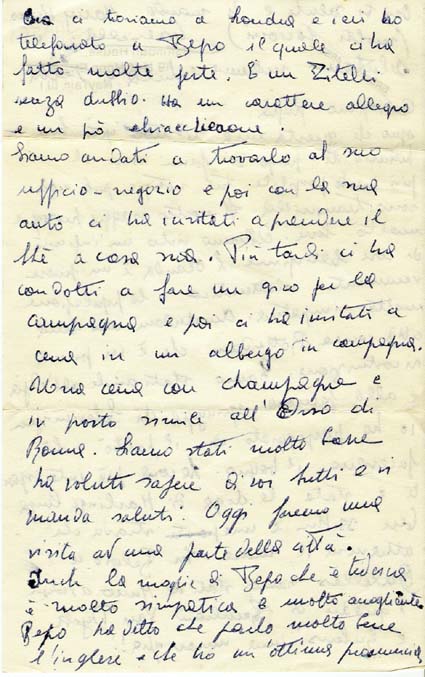 Ora ci troviamo a Londra e ieri ho
telefonato a Bepo il quale ci ha
fatto molte feste. È un Zitelli
senza dubbio. Ha un carattere allegro
e un pò chiacchierone.
Siamo andati a trovarlo al suo
ufficio-negozio e poi con la sua
auto ci ha invitati a prendere il
thè a casa sua. Più tardi ci ha
condotti a fare un giro per la
campagna e poi ci ha invitati a
cena in un albergo in campagna.
Una cena con champagna e
in posto simile all'Orso di
Bonna. Siamo stati molto bene
ha voluto sapere di voi tutti e vi
manda saluti. Oggi faremo una
visita ad una parte della città.
Anch la moglie di Bepo che è tedesca
è molto simpatica e molto accogliente.
Bepo ha detto che parlo molto bene
l'inglese e che ho un'ottima pronuncia